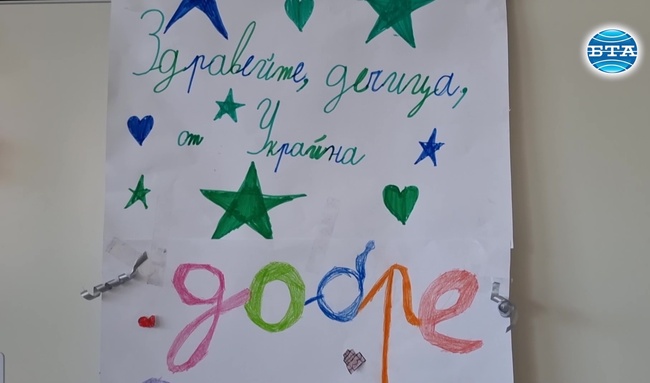 Здравейте, дечица,
от Украйна
добре
БТА